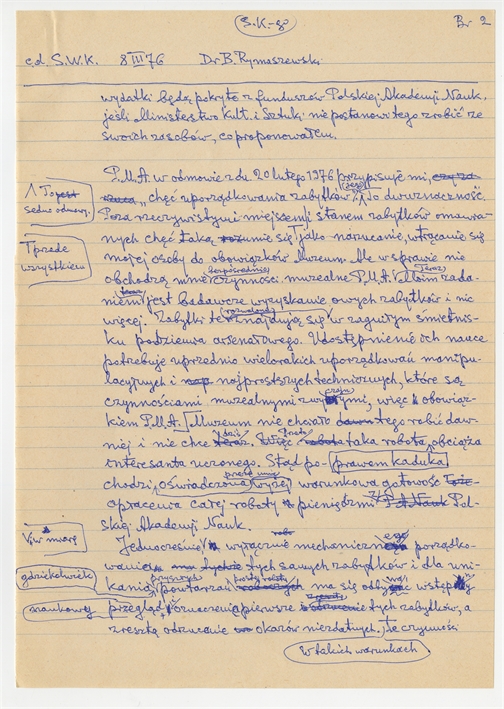 S.K-80
Br 2
c.d. S.W.K. 8 III 76 Dr B. Rymaszewski
wydatki będą pokryte z funduszów Polskiej Akademji Nauk,
jeśli Ministerstwo Kult. i Sztuki nie postanowi tego zrobić ze
swoich zasobów, co proponowałem.
P.M.A. w odmowie z du. 20 lutego 1976 przypisuje mi,
chęć uporządkowania zabytków. Jest to dwuznaczność.
To jest
sedno odmowy.
Poza rzeczywistym i miejszemi stanem zabytków omawia-
nych chęć taką rozumie się jako narzucanie, wtrącanie się
T przede
wszystkiem
mojej osoby do obowiązków Muzeum. Ale w sprawie nie
obchodzą mnie bezpośrednio czynności muzealne P.M.A. Moim zada-
niem jest badawcze wyzyskanie owych zabytków i nic
więcej. Zabytki te znajdują się w zaguiłym śmietnis-
ku podziemia arsenałowego. Udostępnienie ich nauce
potrzebuje uprzednio wielorakich uporządkowań manipu-
lacyjnych i najprostszych technicznych, które są
czynnościami muzealnymi, więc obowiąz-
kiem P.M.A. Muzeum nie chciało tego robić daw-
niej i nie chce dziś. Więc taka robota, obciąża
interesanta uczonego. Stąd po- prawem kaduka
chodzi, oświadczona wyżej warunkowa gotowość
opłacenia całej roboty pieniędzmi Pol-
skiej Akademji Nauk.
Jednocześnie wyłącznie mechaniczne porządko-
wanie tych samych zabytków i dla uni-
gdziekolwiek
kania powtarzań prostej roboty ma się odbywać wstępny
naukowy
przegląd, oznaczenia pierwsze tych zabytków, a
zresztą odrzucanie okazów niezdatnych. Te czynności
w takich warunkach